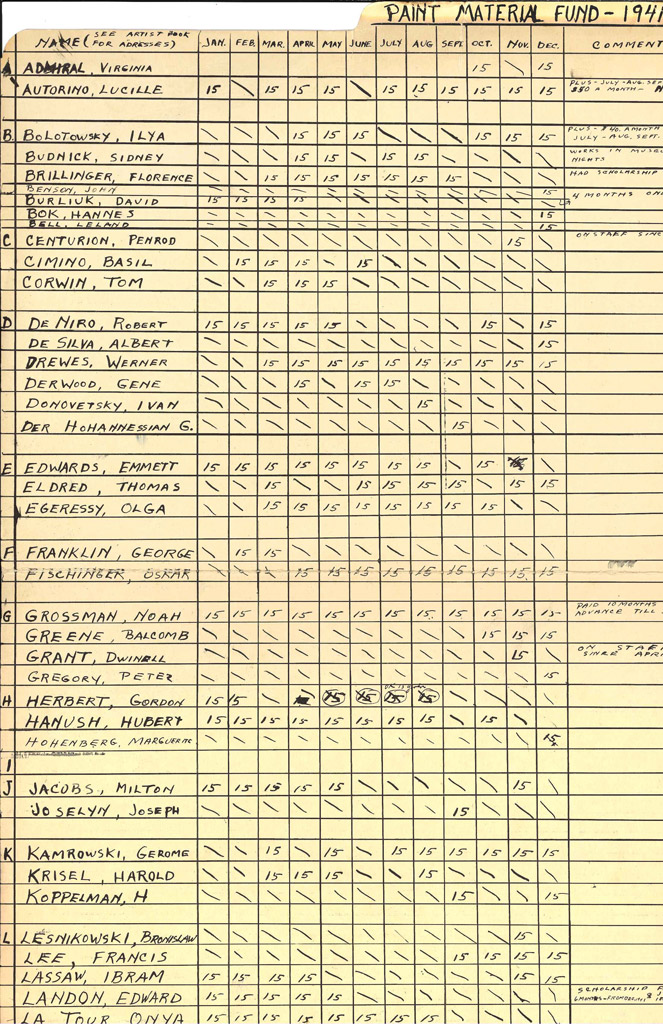 PAINT MATERIAL FUND - 1941
NAME (SEE ARTIST BOOK FOR ADRESSES) JAN. FEB. MAR. APRIL MAY JUNE JULY AUG SEPT. OCT. NOV. DEC. COMMENT
A ADMIRAL, VIRGINIA 15 \ 15
AUTORINO, LUCILLE 15 \ 15 15 15 \ 15 15 15 15 15 15 PLUS - JULY - AUG. SEP
$50 A MONTH -
B. BOLOTOWSKY, ILYA \ \ \ 15 15 15 \ \ \ 15 15 15 PLUS - $40. A MONTH
JULY - AUG. SEPT.
BUDNICK, SIDNEY \ \ \ 15 15 \ 15 15 \ \ \ \ WORKS IN
NIGHTS
BRILLINGER, FLORENCE \ \ 15 15 15 15 15 15 15 \ \ \ HAD SCHOLARSHIP
BENSON, JOHN \ \ \ \ \ \ \ \ \ \ \ 15
BURLIUK, DAVID 15 15 15 15 \ \ \ \ \ \ \ \ 4 MONTHS
BOK, HANNES \ \ \ \ \ \ \ \ \ \ \ 15
BELL, LELAND \ \ \ \ \ \ \ \ \ \ \ 15
C CENTURION, PENROD \ \ \ \ \ \ \ \ \ \ 15 \ ON STAFF SINC
CIMINO, BASIL \ 15 15 15 \ 15 \ \ \ \ \ \
CORWIN, TOM \ \ 15 15 15 \ \ \ \ \ \ \
D DE NIRO, ROBERT 15 15 15 15 15 \ \ \ \ 15 \ 15
DE SILVA, ALBERT \ \ \ \ \ \ \ \ \ \ \ 15
DREWES, WERNER \ \ 15 15 15 15 15 15 15 15 15 15
DERWOOD, GENE \ \ \ 15 \ 15 15 \ \ \ \ \
DONOVETSKY, IVAN \ \ \ \ \ \ \ 15 \ \ \ \
DER HOHANNESSIAN G. \ \ \ \ \ \ \ \ 15 \ \ \
E EDWARDS, EMMETT 15 15 15 15 15 15 15 15 \ 15 15 \
ELDRED, THOMAS \ \ 15 \ \ 15 15 15 15 \ 15 15
EGERESSY, OLGA \ \ 15 15 15 15 15 15 15 15 \ \
F FRANKLIN, GEORGE \ 15 15 \ \ \ \ \ \ \ \ \
FISCHINGER, OSKAR \ \ \ 15 15 15 15 15 15 15 15 15
G GROSSMAN, NOAH 15 15 15 15 15 15 15 15 15 15 15 15 PAID 10 MONTHS
ADVANCE TILL
GREENE, BALCOMB \ \ \ \ \ \ \ \ \ 15 15 15
GRANT, DWINELL \ \ \ \ \ \ \ \ \ \ 15 \ ON STAFF
SINCE APRI
GREGORY, PETER \ \ \ \ \ \ \ \ \ \ \ 15
H HERBERT, GORDON 15 15 \ 15 15 15 15 \ \ \ \
HANUSH, HUBERT 15 15 15 15 15 15 15 15 \ 15 15 \
HOHENBERG, MARGUERITE \ \ \ \ \ \ \ \ \ \ \ 15
I
J JACOBS, MILTON 15 15 15 15 15 \ \ \ \ \ 15 \
JOSELYN, JOSEPH \ \ \ \ \ \ \ \ 15 \ \ \
K KAMROWSKI, GEROME \ \ 15 \ 15 \ 15 15 15 15 15 15
KRISEL, HAROLD \ \ 15 15 15 \ \ 15 \ \ \ \
KOPPELMAN, H \ \ \ \ \ \ \ \ 15 \ \ 15
L LESNIKOWSKI, BRONISLAW \ \ \ \ \ \ \ \ \ \ 15 \
LEE, FRANCIS \ \ \ \ \ \ \ \ 15 15 15 15
LASSAW, IBRAM 15 15 15 15 \ \ \ \ \ \ 15 15
LANDON, EDWARD 15 15 15 15 \ \ \ \ \ \ \ \ SCHOLARSHIP F
LA TOUR ONYA 15 15 15 15 15 15 15 15 \ \ \ \